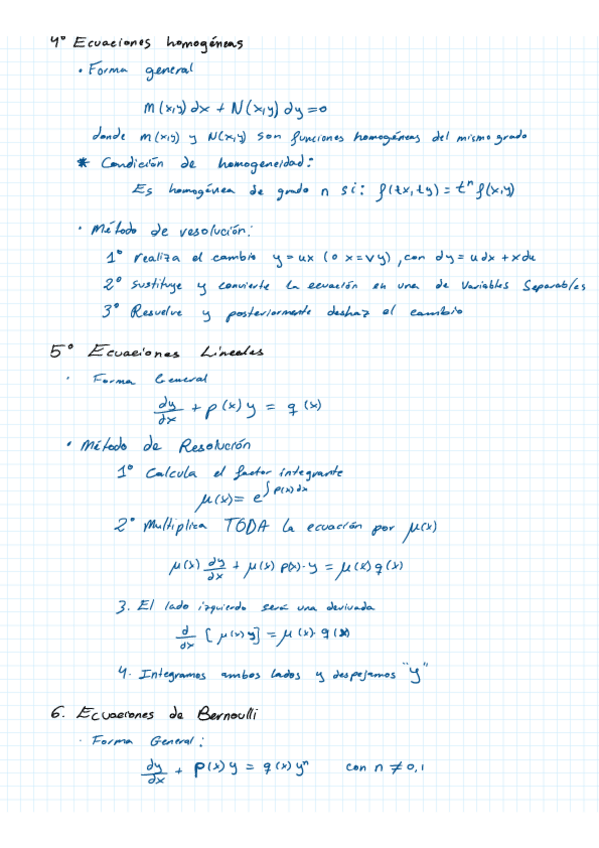 4º Ecuaciones homogéneas
• Forma general
M(x,y) dx + N(x,y) dy = 0
donde M(x,y) y N(x,y) son funciones homogéneas del mismo grado
* Condición de homogeneidad:
Es homogénea de grado n si: f(tx,ty) = tⁿ f(x,y)
• Método de resolución:
1º realiza el cambio y = ux (o x = vy), con dy = u dx + x du
2º sustituye y convierte la ecuación en una de Variables Separables
3º Resuelve y posteriormente deshaz el cambio
5º Ecuaciones Lineales
• Forma General
dy/dx + p(x) y = q(x)
• Método de Resolución
1º Calcula el factor integrante
μ(x) = e^∫p(x)dx
2º Multiplica TODA la ecuación por μ(x)
μ(x) dy/dx + μ(x) p(x)·y = μ(x) q(x)
3. El lado izquierdo será una derivada
d/dx [μ(x) y] = μ(x)·q(x)
4. Integramos ambos lados y despejamos "y"
6. Ecuaciones de Bernoulli
• Forma General:
dy/dx + p(x) y = q(x) yⁿ con n ≠ 0,1